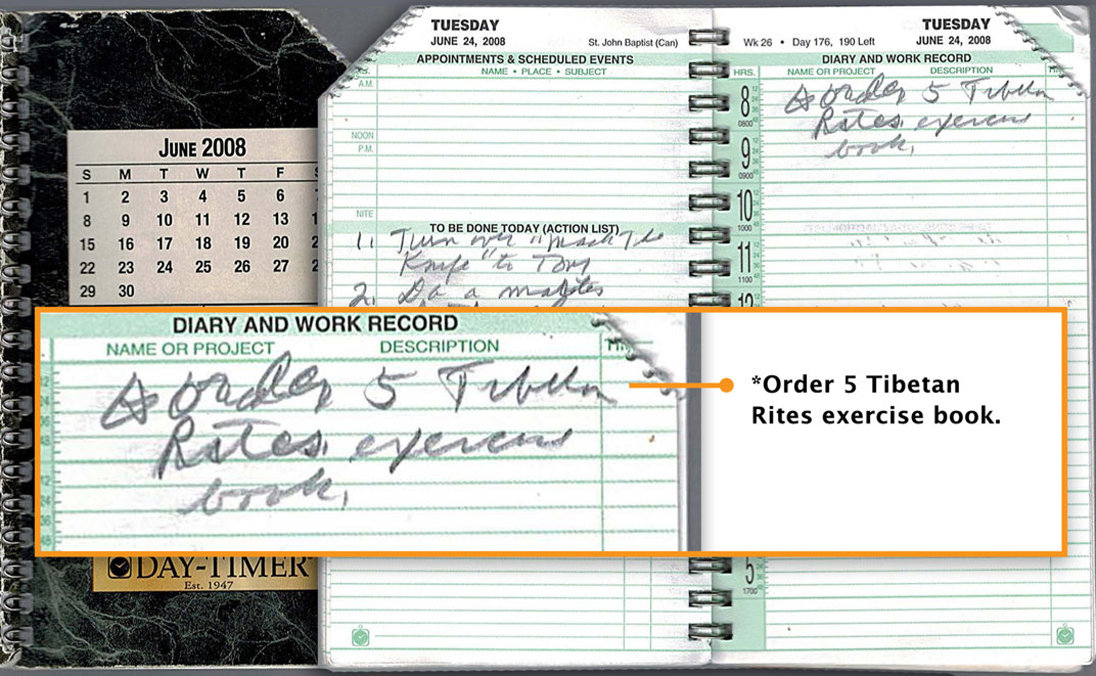 JUNE 2008
S M T W T F S
1 2 3 4 5 6
8 9 10 11 12 13
15 16 17 18 19 20
22 23 24 25 26 27
29 30
DAY-TIMER
Est. 1947
TUESDAY
JUNE 24, 2008 St. John Baptist (Can)
APPOINTMENTS & SCHEDULED EVENTS
HRS. NAME • PLACE • SUBJECT
A.M.
NOON
P.M.
NITE
TO BE DONE TODAY (ACTION LIST)
1. Turn over "Mack The
Knife" to Tony
2. Do a
TUESDAY
Wk 26 • Day 176, 190 Left JUNE 24, 2008
DIARY AND WORK RECORD
HRS. NAME OR PROJECT DESCRIPTION
8 order 5 Tibetan
0800 Rites exercise
9 book.
0900
10
1000
11
1100
12
5
1700
DIARY AND WORK RECORD
NAME OR PROJECT DESCRIPTION
order 5 Tibetan
Rites exercise
book.
*Order 5 Tibetan
Rites exercise book.